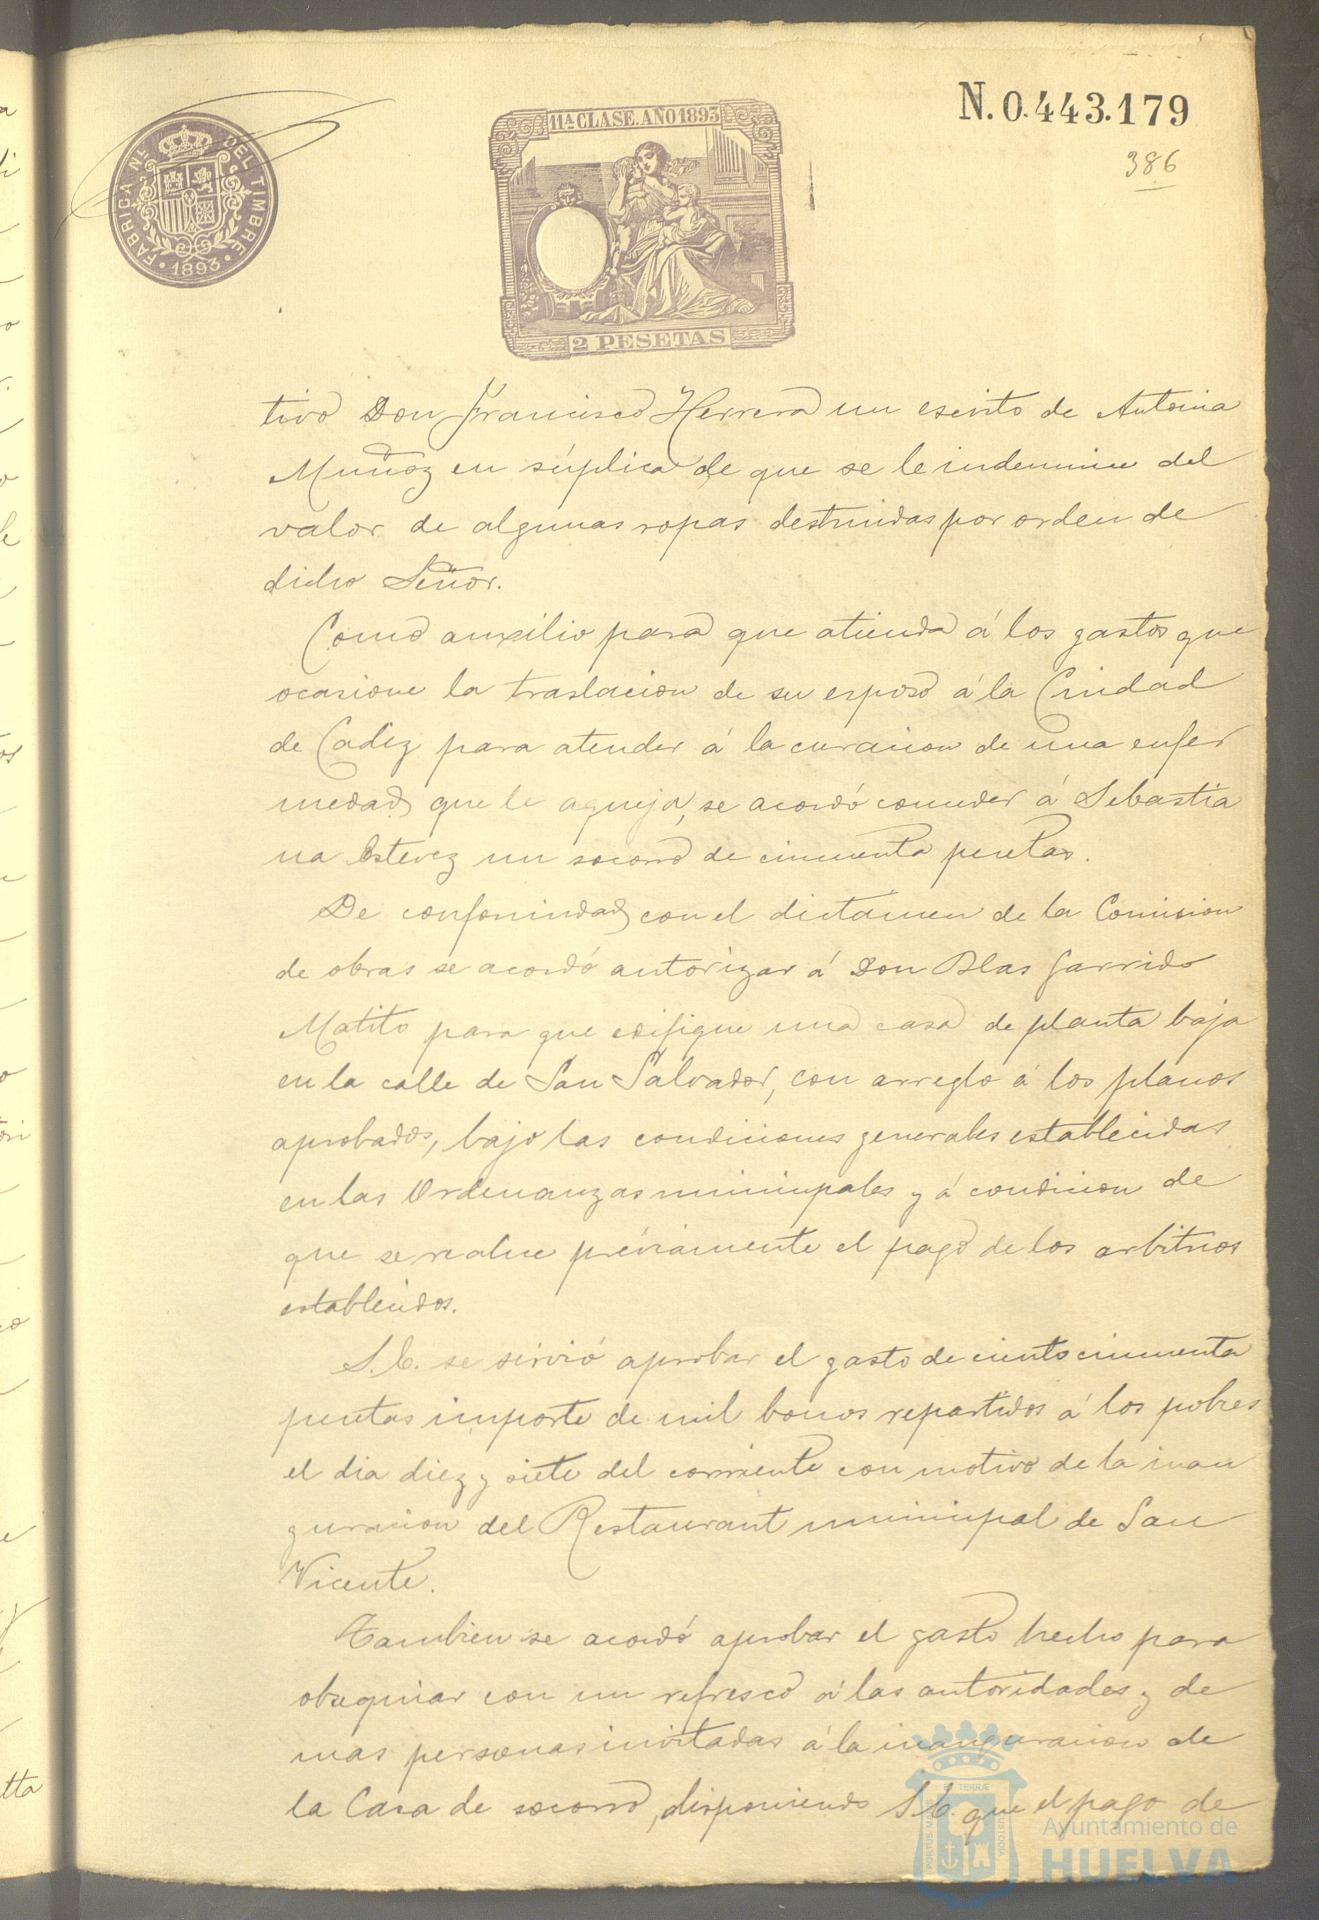 N. 0.443.179
386
11ª CLASE. AÑO 1893
FABRICA Nˡ DEL TIMBRE
1893
2 PESETAS
tivo Don Francisco Herrera un escrito de Antonia
Muñoz en súplica de que se le indemnice del
valor de algunas ropas destruidas por orden de
dicho Señor.
Como auxilio para que atienda á los gastos que
ocasione la traslacion de su esposo á la Ciudad
de Cadiz para atender á la curacion de una enfer
medad que le aqueja, se acordó conceder á Sebastia
na Estevez un socorro de cincuenta pesetas.
De conformidad con el dictámen de la Comision
de obras se acordó autorizar á Don Blas Garrido
Matito para que edifique una casa de planta baja
en la calle de San Salvador, con arreglo á los planos
aprobados, bajo las condiciones generales establecidas
en las Ordenanzas municipales y á condicion de
que se realice préviamente el pago de los arbitrios
establecidos.
S.E. se sirvió aprobar el gasto de ciento cincuenta
pesetas importe de mil bonos repartidos á los pobres
el dia diez y siete del corriente con motivo de la inau
guracion del Restaurant municipal de San
Vicente.
Tambien se acordó aprobar el gasto hecho para
obsequiar con un refresco á las autoridades y de
mas personas invitadas á la inauguracion de
la Casa de socorro, disponiendo S.E. que el pago de
Ayuntamiento de
HUELVA